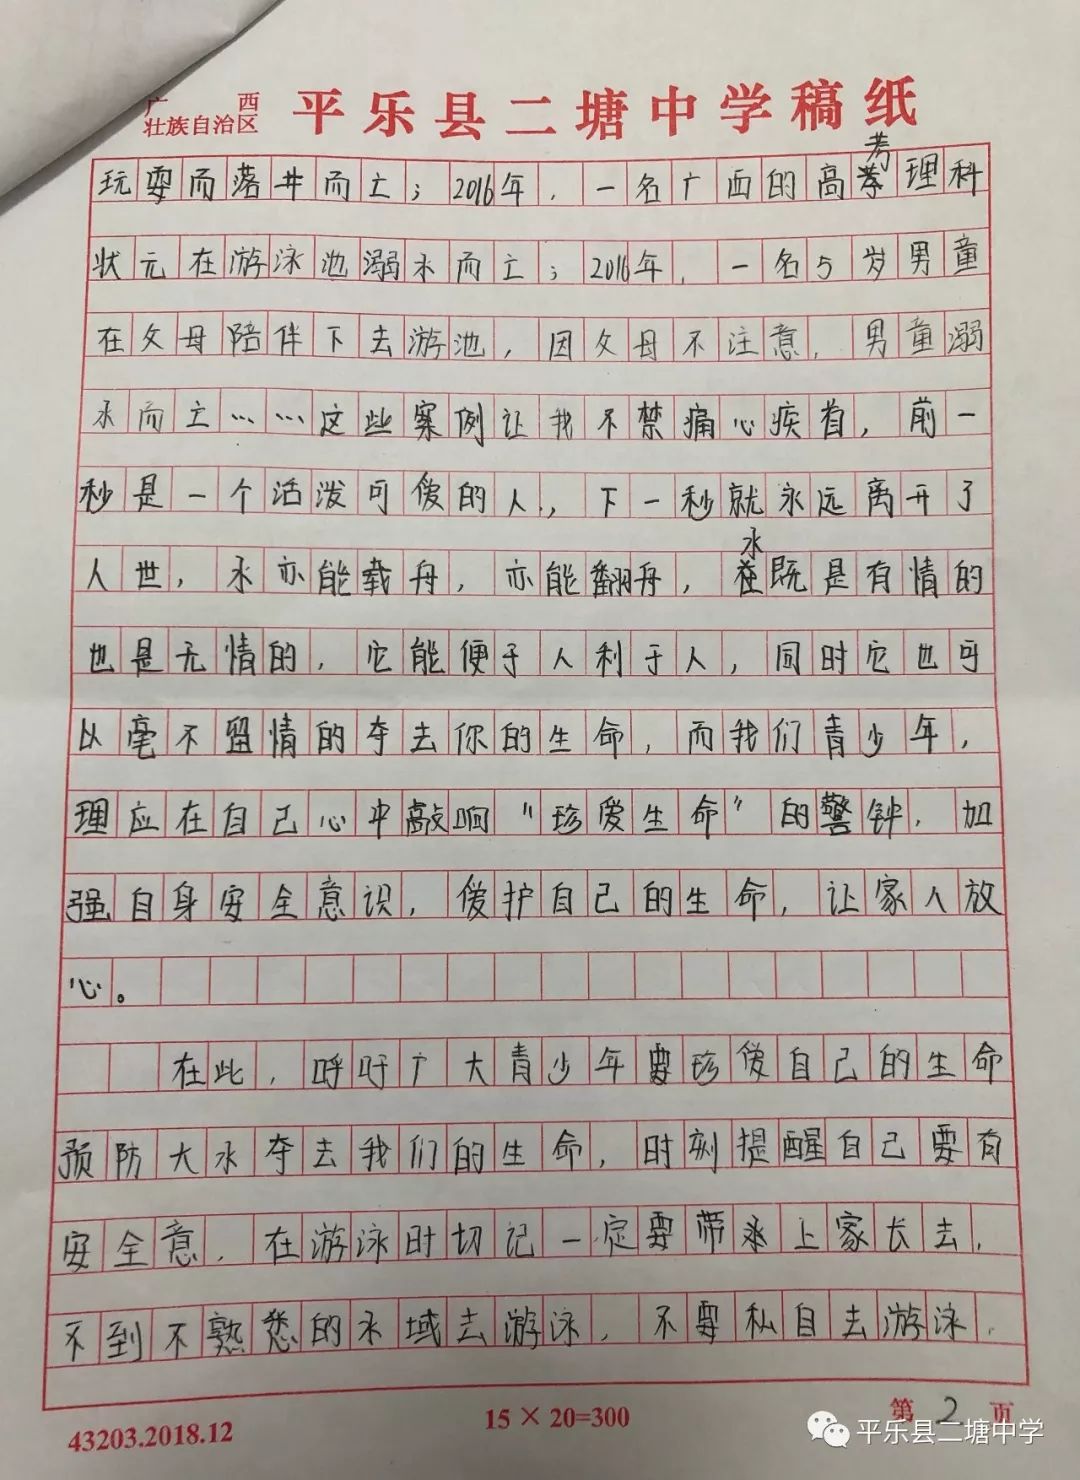 广西
壮族自治区
平乐县二塘中学稿纸
考
玩耍而落井而亡；2016年，一名广西的高理科
状元在游泳池溺水而亡；2016年，一名5岁男童
在父母陪伴下去游池，因父母不注意，男童溺
水而亡……这些案例让我不禁痛心疾首，前一
秒是一个活泼可爱的人，下一秒就永远离开了
水
人世，水亦能载舟，亦能翻舟，既是有情的
也是无情的，它能便于人利于人，同时它也可
以毫不留情的夺去你的生命，而我们青少年，
理应在自己心中敲响“珍爱生命”的警钟，加
强自身安全意识，爱护自己的生命，让家人放
心。
在此，呼吁广大青少年要珍爱自己的生命
预防大水夺去我们的生命，时刻提醒自己要有
安全意，在游泳时切记一定要带上家长去，
不到不熟悉的水域去游泳，不要私自去游泳，
43203.2018.12
15×20=300
第2页
平乐县二塘中学